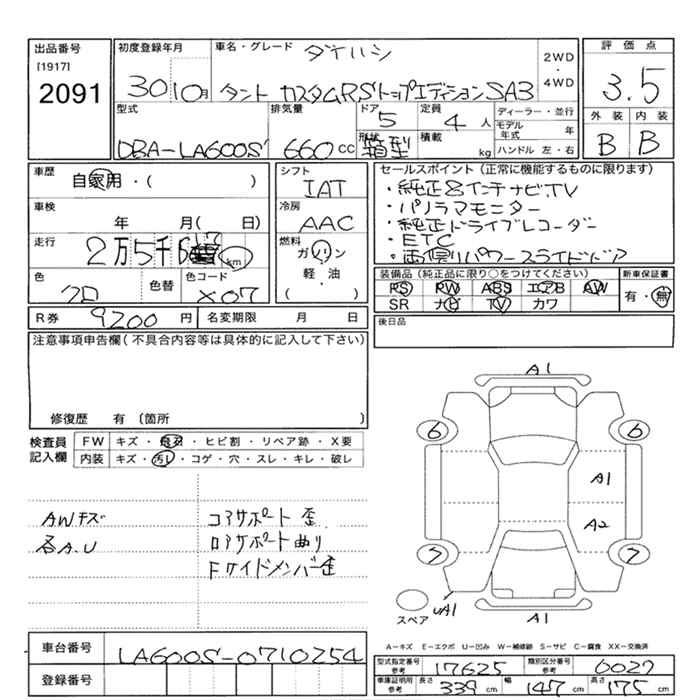 出品番号
[1917]
2091
初度登録年月
30 10月
車名・グレード ダイハツ
タント カスタムRSトップエディションSA3
2WD
・
4WD
評価点
3.5
外装 内装
B B
型式
DBA-LA600S
排気量
660 cc
ドア
5
形状
箱型
定員
4 人
積載
kg
ディーラー・並行
モデル年式 年
ハンドル 左・右
車歴
自家用・( )
車検
年 月( 日)
走行
2万5千6百 km
色
クロ
色替
色コード
X07
シフト
IAT
冷房
AAC
燃料
ガソリン
軽・油
( )
セールスポイント(正常に機能するものに限ります)
・純正8インチナビTV
・パノラマモニター
・純正ドライブレコーダー
・ETC
・両側パワースライドドア
装備品(純正品に限り○をつけてください)
PS PW ABS エアB AW
SR ナビ TV カワ
新車保証書
有・無
R券 9200 円
名変期限 月 日
後日品
注意事項申告欄(不具合内容等は具体的に記入して下さい)
修復歴 有(箇所 )
検査員
記入欄
FW キズ・飛石・ヒビ割・リペア跡・X要
内装 キズ・汚れ・コゲ・穴・スレ・キレ・破レ
AWキズ
各A.U
コアサポート歪
ロアサポート曲り
Fサイドメンバー歪
A1
6 6
A1
A2
7 7
スペア
UA1
A1
A-キズ E-エクボ U-凹み W-補修跡 S-サビ C-腐食 XX-交換済
車台番号 LA600S-0710254
登録番号
型式指定番号
参考
17625
類別区分番号
参考
6027
車庫証明用
参考
長さ 339 cm 幅 147 cm 高さ 175 cm